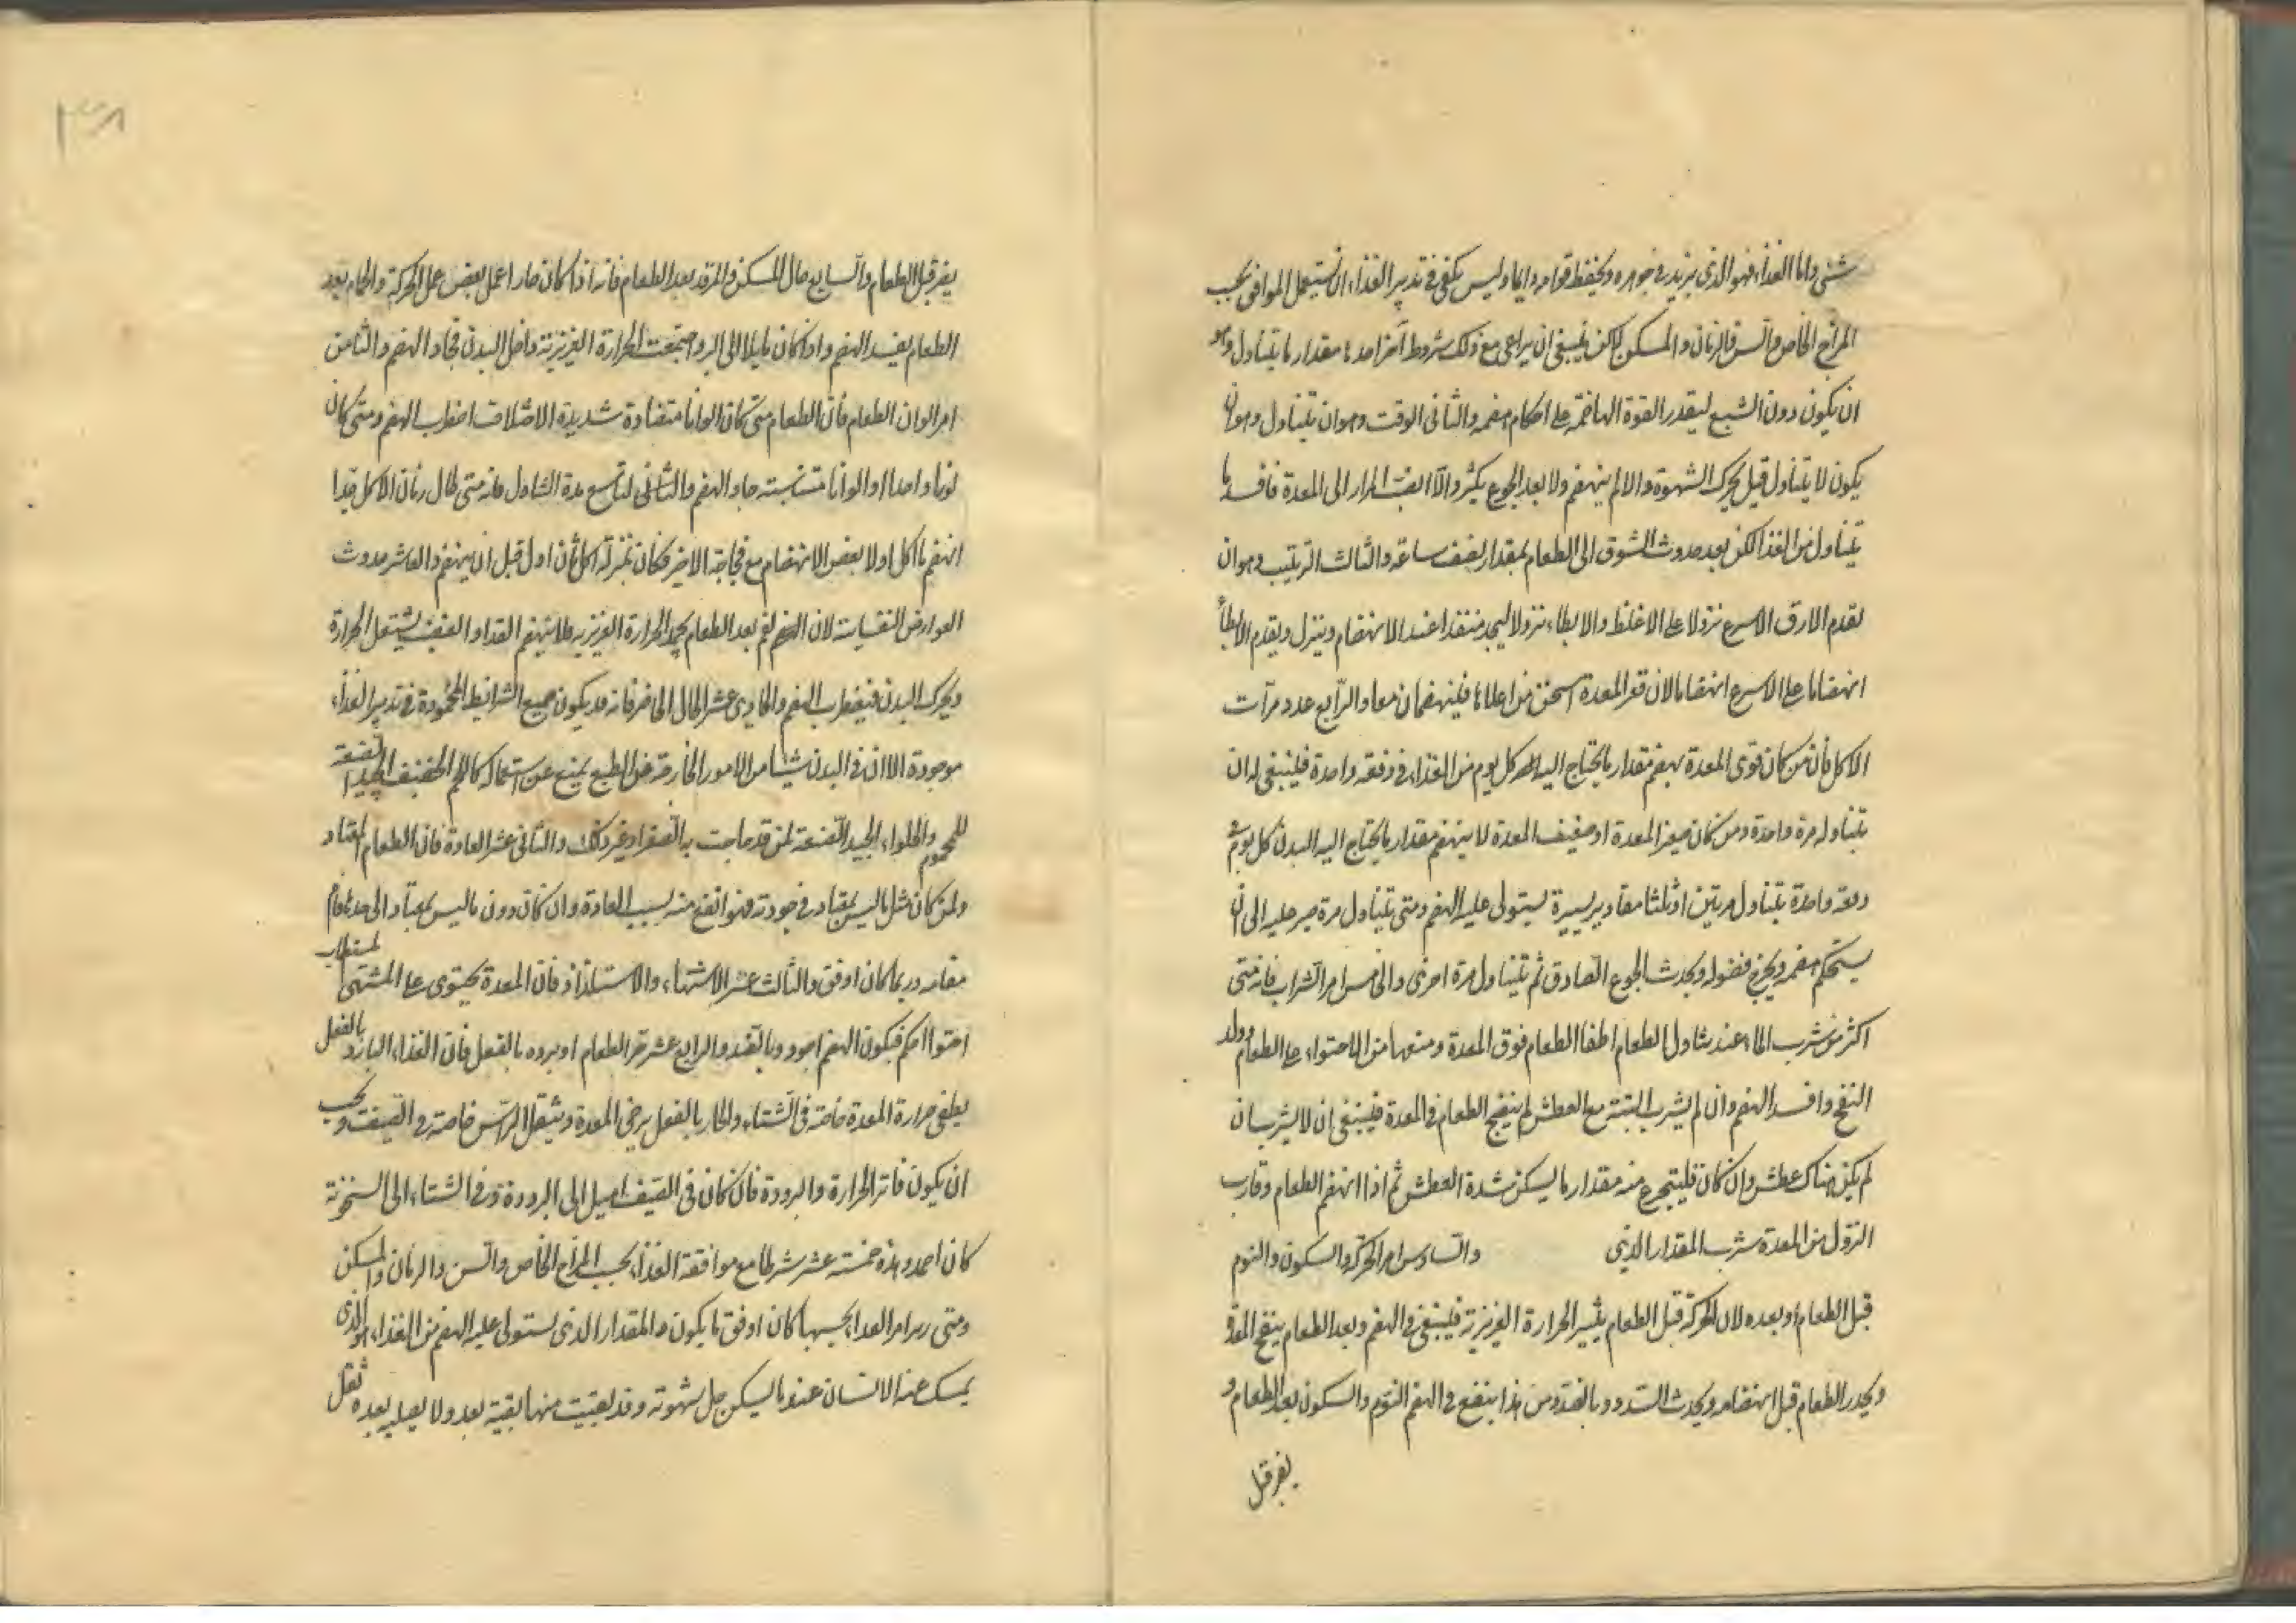 شئ واما الغذاء فهو الذى يزيد فى جوهره ويحفظ قوامه دايما وليس يكفى فى تدبير الغذاء ان يستعمل الموافق بحسب
المزاج الخاص والسن والزمان والمسكن لكن ينبغى ان يراعى مع ذلك شروط اخر احدها مقدار ما يتناول وهو
ان يكون دون الشبع ليقدر القوة الهاضمة على احكام هضمه والثانى الوقت وهو ان يتناول وهو ان
يكون لا يتناول قبل تحرك الشهوة والا لم ينهضم ولا بعد الجوع بكثير والا انصب المرار الى المعدة فافسد ما
يتناول من الغذا لكن بعد حدوث الشوق الى الطعام بمقدار نصف ساعة والثالث الترتيب وهو ان
يقدم الارق الاسرع نزولا على الاغلظ والابطاء نزولا ليجد منفذا عند الانهضام وينزل ويقدم الابطأ
انهضاما على الاسرع انهضاما لان قعر المعدة اسخن من اعلاها فلينهضمان معا والرابع عدد مرات
الاكل فان من كان قوى المعدة يهضم مقدار ما يحتاج اليه كل يوم من الغذاء فى دفعه واحدة فلينبغى له ان
يتناوله مرة واحدة ومن كان صغير المعدة او ضعيف المعدة لا ينهضم مقدار ما يحتاج اليه البدن كل يوم فى
دفعة واحدة يتناول مرتين او ثلثا مقادير يسيرة يستولى عليه الهضم ومتى يتناول مرة صبر عليه الى ان
يستحكم هضمه ويخرج فضوله ويحدث الجوع الصادق ثم يتناول مرة اخرى والخامس امر الشراب فانه متى
اكثر من شرب الماء عند تناول الطعام اطفا الطعام فوق المعدة ومنعها من الاحتواء على الطعام وولد
النفخ وافسد الهضم وان لم يشرب البتة مع العطش لم ينضج الطعام فى المعدة فينبغى ان لا يشرب ان
لم يكن هناك عطش وان كان فليتجرع منه مقدار ما يسكن شدة العطش ثم اذا انهضم الطعام وقارب
النزول من المعدة شرب المقدار الذى والسادس امر الحركة والسكون والنوم
قبل الطعام او بعده لان الحركة قبل الطعام يثير الحرارة الغريزية فينبغى فى الهضم وبعد الطعام ينفخ المعدة
ويحدر الطعام قبل انهضامه ويحدث السدد وبالضد ومن هذا ينفع فى الهضم النوم والسكون بعد الطعام و
يضر قبل
يضر قبل الطعام والسابع حال المسكن والمرقد بعد الطعام فانه اذا كان حارا عمل بعض عمل الحركة والحمام بعد
الطعام يفسد الهضم واذا كان مايلا الى البرد اجتمعت الحرارة الغريزية داخل البدن فجاد الهضم والثامن
امر الوان الطعام فان الطعام متى كان الوانا متضادة شديدة الاختلاف اضطرب الهضم ومتى كان
لونا واحدا او الوانا متناسبة جاد الهضم والتاسع مدة التناول فانه متى طال زمان الاكل جدا
انهضم ما اكل اولا بعض الانهضام مع فجاجة الاخير فكان بمنزلة اكل ثان اول قبل ان ينهضم والعاشر حدوث
العوارض النفسانية لان الغم بعد الطعام يخمد الحرارة الغريزية فلا ينهضم الغداء والغضب يشتعل الحرارة
ويحرك البدن فيضطرب الهضم والحادى عشر الحال الحاضر فانه قد يكون جميع الشرائط المحمودة فى تدبير الغذاء
موجودة الا ان فى البدن شيئا من الامور الخارجة عن الطبع يمنع عن استعماله كاللحم الخفيف الجيد الصنعة
للمحموم والحلواء الجيد الصنعة لمن قد هاجت به الصفراء وغير ذلك والثانى عشر العادة فان الطعام المعتاد
ولمن كان مثل ما ليس بمعتاد فى جودته فهو انفع منه بسبب العادة وان كان دون ما ليس بمعتاد الى حد ما قام
مقامه وربما كان اوفق والثالث عشر الاشتهاء والاستلذاذ فان المعدة يحتوى على المشتهى المستطاب
احتوا احكم فيكون الهضم اجود وبالضد والرابع عشر حر الطعام او برده بالفعل فان الغذاء البارد بالفعل
يطفى حرارة المعدة خاصة فى الشتاء والحار بالفعل يرخى المعدة ويثقل الراس خاصة فى الصيف ويجب
ان يكون فاتر الحرارة والبرودة فان كان فى الصيف اميل الى البرودة وفى الشتاء الى السخونة
كان احمد وهذه خمسة عشر شرطا مع موافقة الغذاء بحسب المزاج الخاص والسن والزمان والمسكن
ومتى امر الغداء بحسبها كان اوفق ما يكون والمقدار الذى يستولى عليه الهضم من الغذاء هو الذى
يمسك عنه الانسان عند ما يسكن جل شهوته وقد بقيت منها بقية بعد ولا يصيبه بعده ثقل